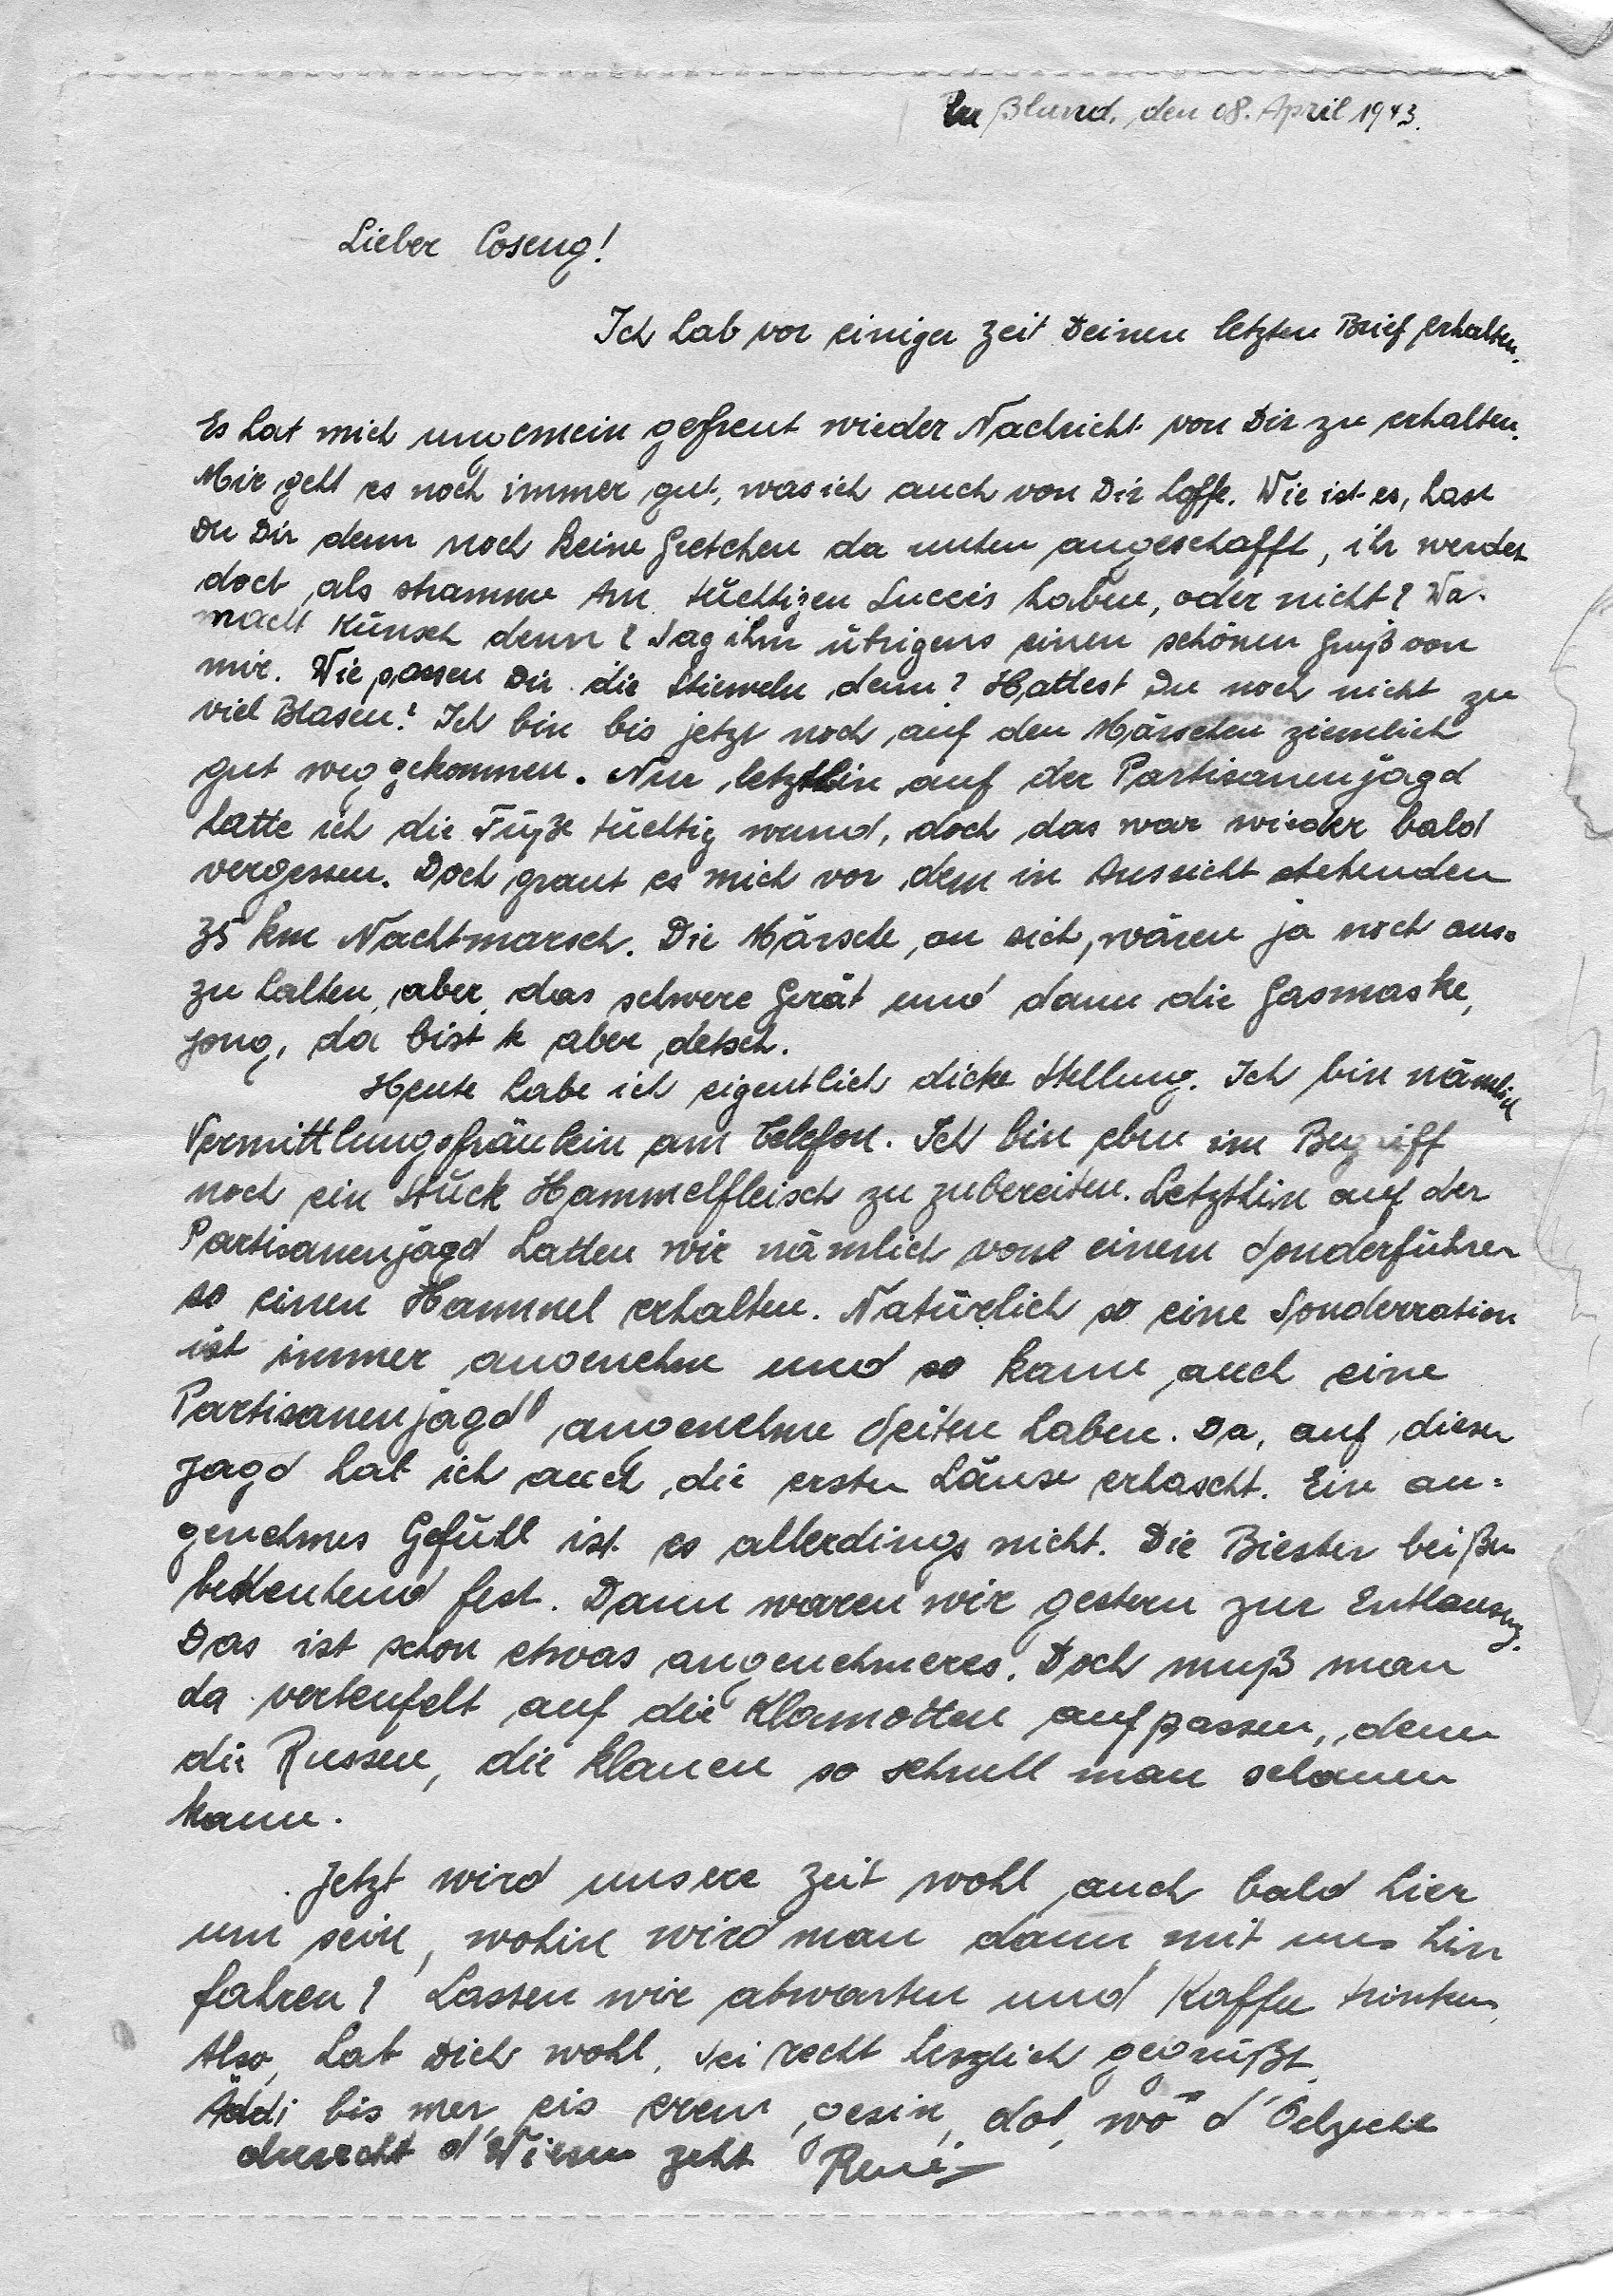 Rußland, den 08. April 1943.
Lieber Coseng!
Ich hab vor einiger Zeit Deinen letzten Brief erhalten.
Es hat mich ungemein gefreut wieder Nachricht von Dir zu erhalten.
Mir geht es noch immer gut, was ich auch von Dir hoffe. Wie ist es, hast
Du Dir denn noch keine Gretchen da unten angeschafft, ihr werdet
doch als stramme tüchtigen Succès haben, oder nicht? Wa
macht Künsch denn? Sag ihm übrigens einen schönen Gruß von
mir. Wie passen Dir die Stieweln denn? Hattest Du noch nicht zu
viel Blasen? Ich bin bis jetzt noch auf den Märschen ziemlich
gut weggekommen. Nur letzthin auf der Partisanenjagd
hatte ich die Füße tüchtig wund, doch das war wieder bald
vergessen. Doch graut es mich vor dem in Aussicht stehenden
35 km Nachtmarsch. Die Märsche, an sich, wären ja noch aus=
zu halten, aber das schwere Gerät und dann die Gasmaske,
jong, da bist k aber detsch.
Heute habe ich eigentlich dicke Stellung. Ich bin nämlich
Vermittlungsfräulein am Telefon. Ich bin eben im Begriff
noch ein Stück Hammelfleisch zu zubereiten. Letzthin auf der
Partisanenjagd hatten wir nämlich von einem Sonderführer
so einen Hammel erhalten. Natürlich so eine Sonderration
ist immer angenehm und so kann auch eine
Partisanenjagd angenehme Seiten haben. Da, auf dieser
Jagd hab ich auch die ersten Läuse erhascht. Ein an=
genehmes Gefühl ist es allerdings nicht. Die Biester beißen
bedeutend fest. Dann waren wir gestern zur Entlausung.
Das ist schon etwas angenehmeres. Doch muß man
da verteufelt auf die Klamotten aufpassen, denn
die Russen, die klauen so schnell man schauen
kann.
Jetzt wird unsere Zeit wohl auch bald hier
um sein, wohin wird man dann mit uns hin
fahren? Lassen wir abwarten und Kaffee trinken.
Also, hab Dich wohl, sei recht herzlich gegrüßt
Äddi bis mer eis erem gesin, dot, wō d'Oelzecht
duerecht d'Wiesen zeht René